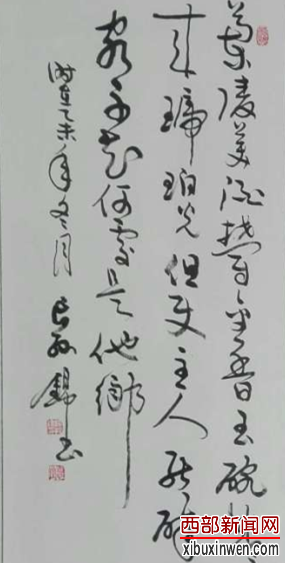 蘭陵美酒鬱金香玉碗盛
来琥珀光但使主人能醉
客不知何處是他鄉
时在乙未年冬月 錦书
西部新闻网
xibuxinwen.com